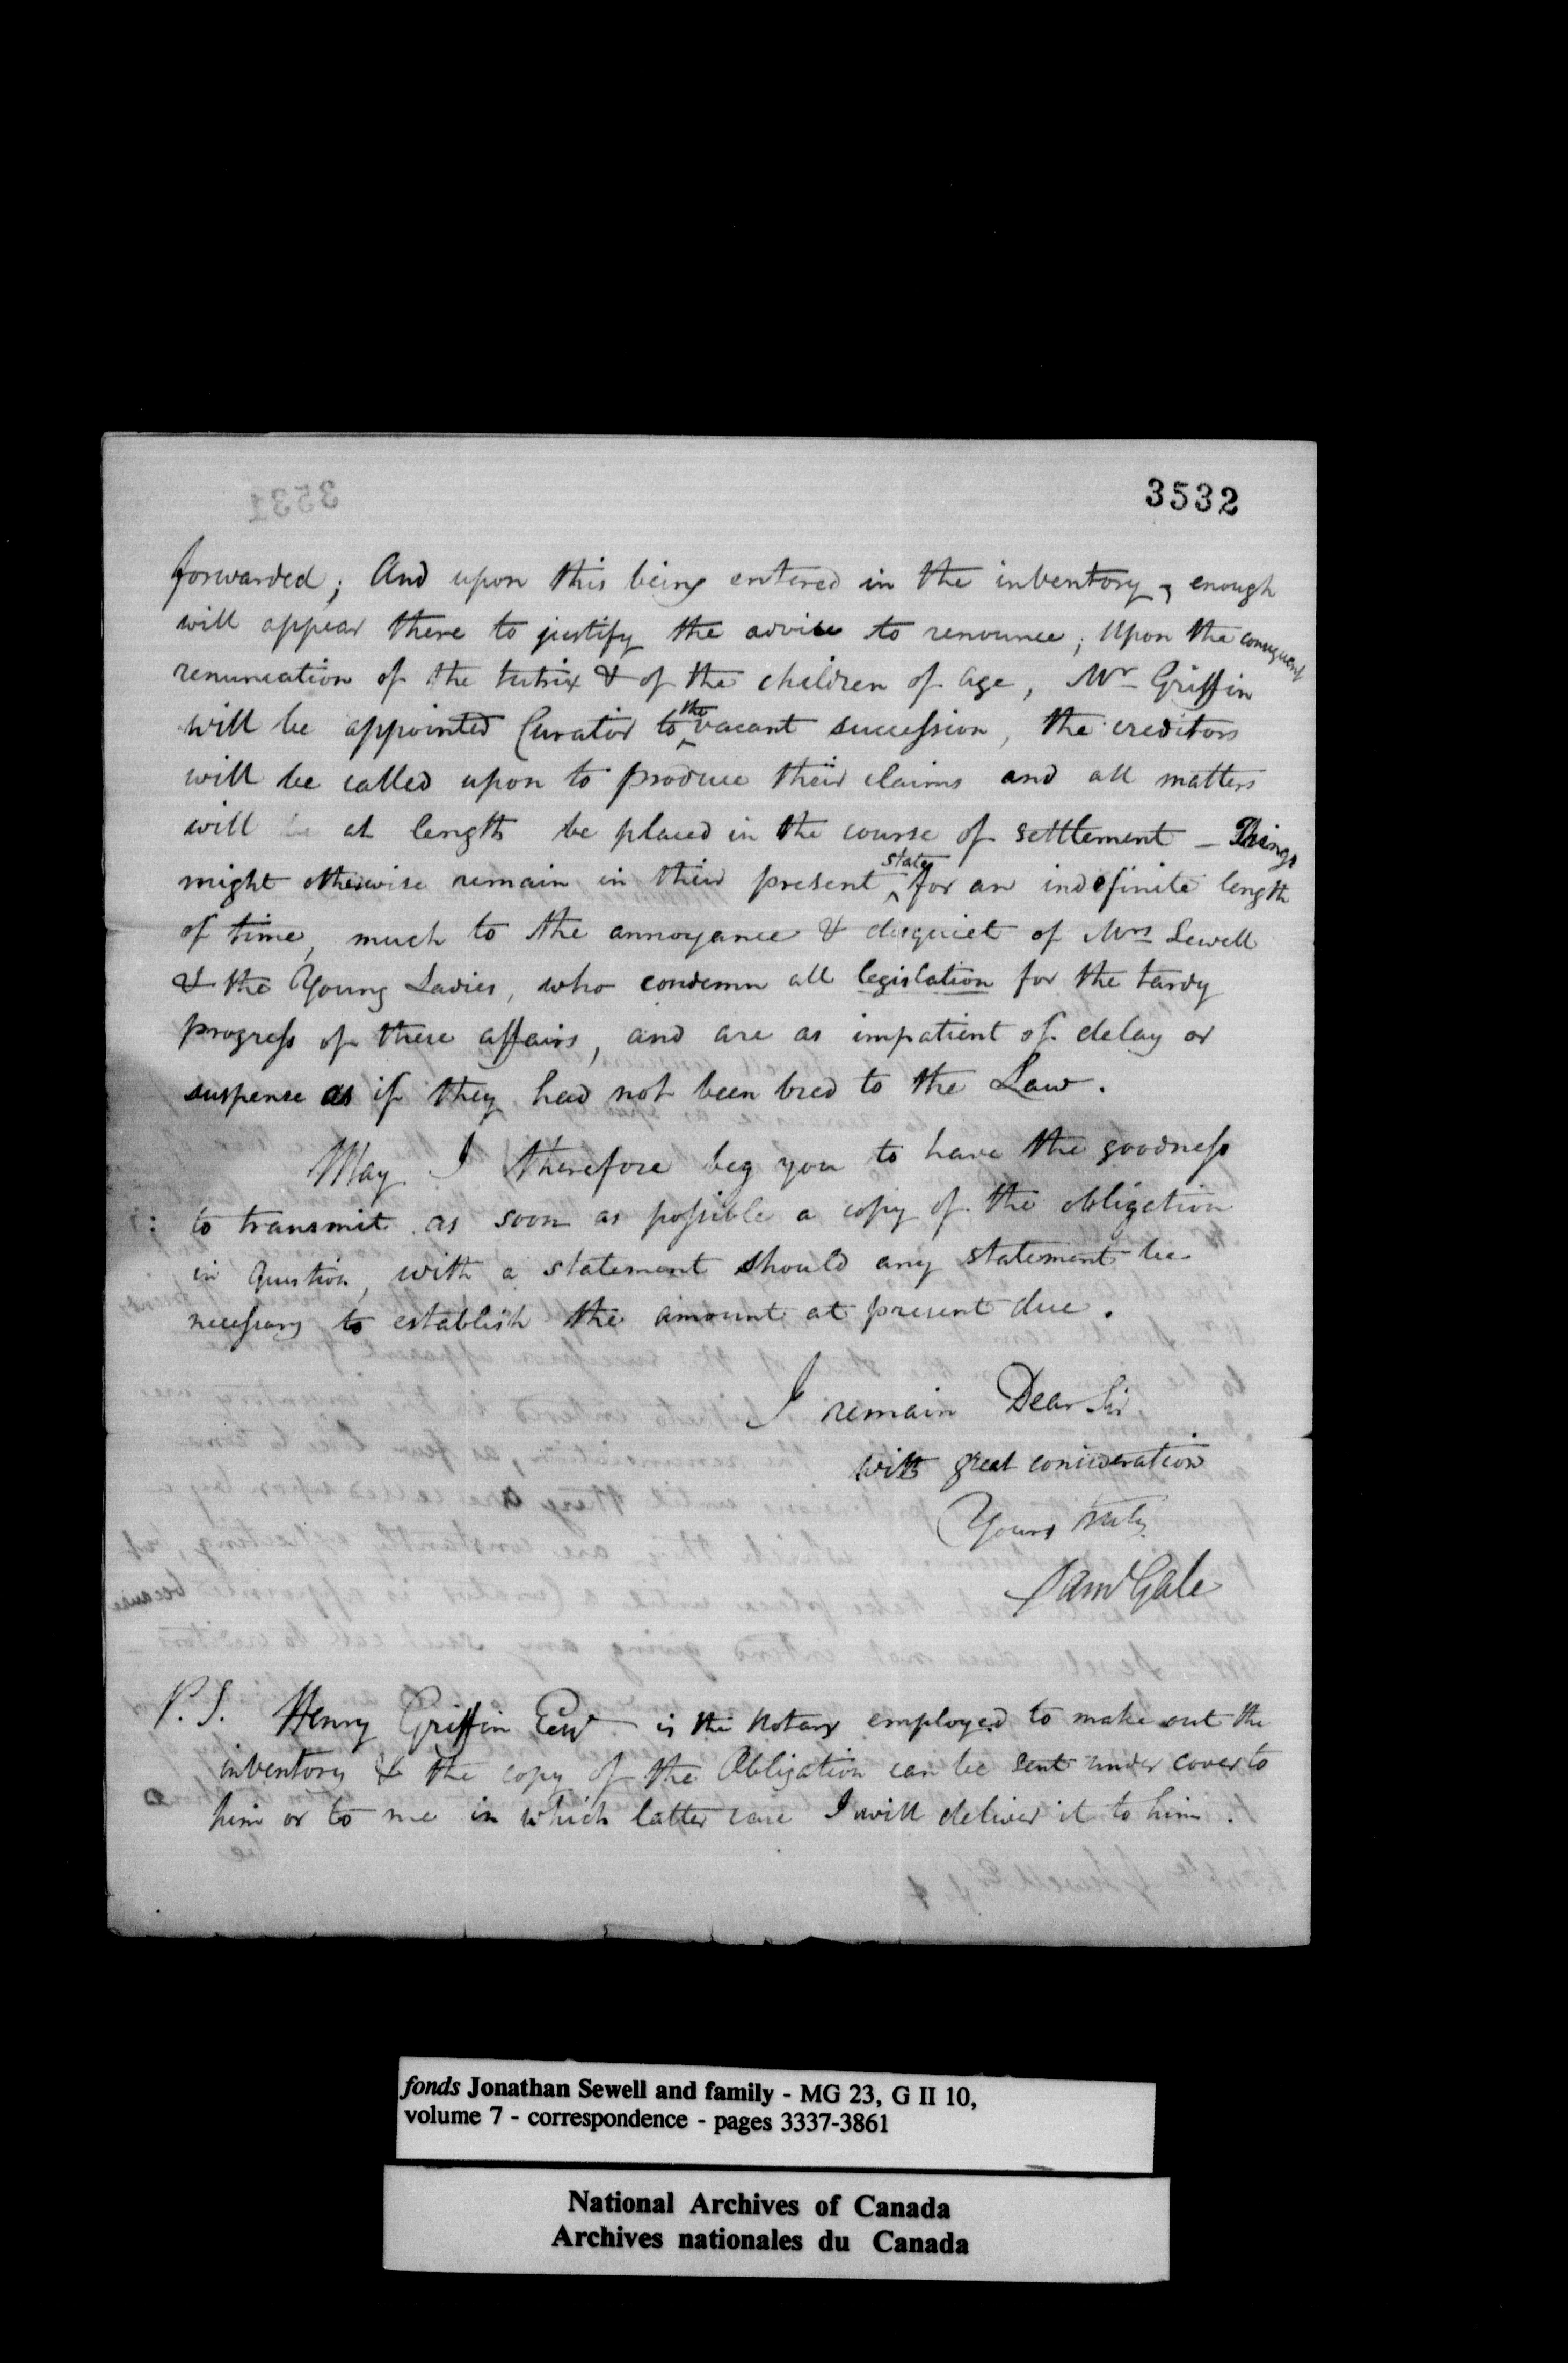 3532
forwarded; And upon this being entered in the inventory, enough
will appear there to justify the advice to renounce; Upon the consequent
renunciation of the tutrix & of the children of age, Mr Griffin
will be appointed Curator to the vacant succession, the creditors
will be called upon to produce their claims and all matters
will be at length be placed in the course of settlement - Things
might otherwise remain in their present state for an indefinite length
of time, much to the annoyance & disquiet of Mrs Sewell
& the Young Ladies, who condemn all legislation for the tardy
progress of these affairs, and are as impatient of delay or
suspense as if they had not been bred to the Law.
May I therefore beg you to have the goodness
to transmit as soon as possible a copy of the obligation
in question, with a statement should any statement be
necessary to establish the amount at present due.
I remain Dear Sir
with great consideration
Yours truly
Saml Gale
P.S. Henry Griffin Esqr is the Notary employed to make out the
inventory & the copy of the Obligation can be sent under cover to
him or to me in which latter case I will deliver it to him.
fonds Jonathan Sewell and family - MG 23, G II 10,
volume 7 - correspondence - pages 3337-3861
National Archives of Canada
Archives nationales du Canada